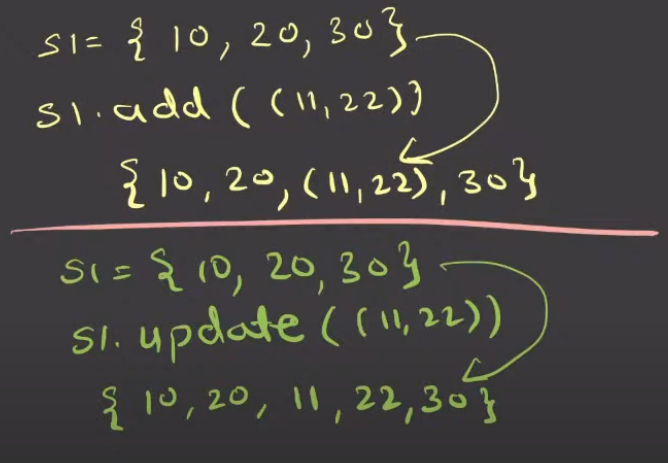 S1= { 10, 20, 30}
S1.add ( (11,22))
{ 10, 20, (11,22), 30}
S1= { 10, 20, 30}
S1. update ( (11,22))
{ 10, 20, 11, 22, 30}